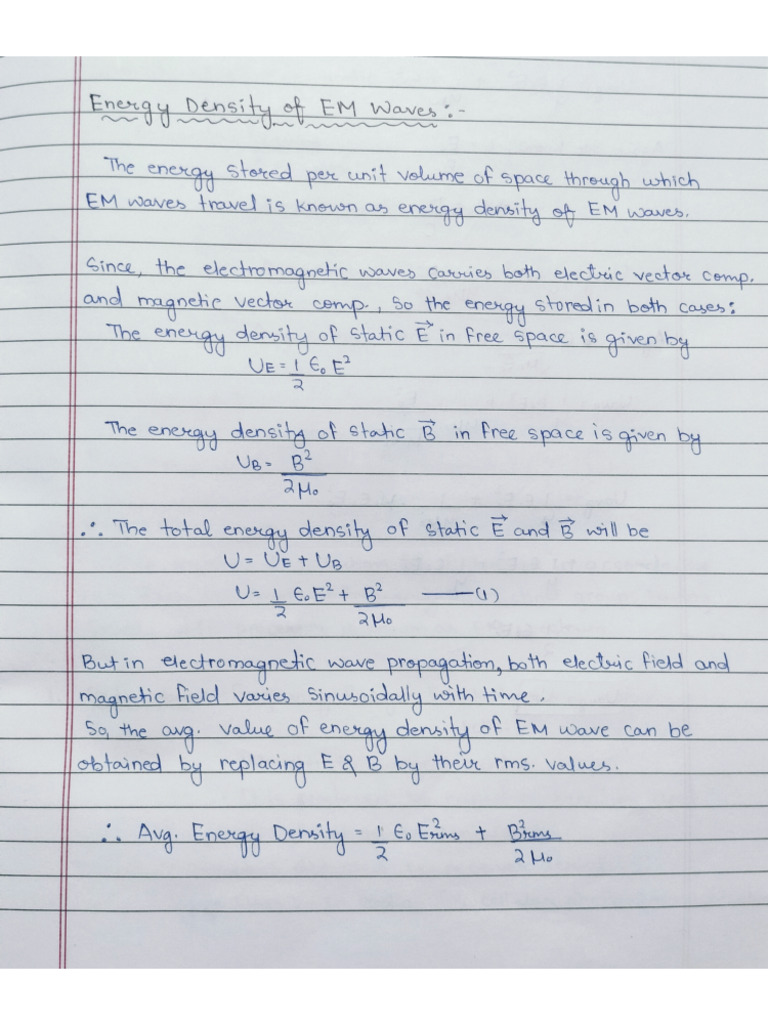 Energy Density of EM Waves:-
The energy stored per unit volume of space through which
EM waves travel is known as energy density of EM waves.
Since, the electromagnetic waves carries both electric vector comp.
and magnetic vector comp., so the energy stored in both cases:
The energy density of static E⃗ in free space is given by
U_E = 1/2 ε₀ E²
The energy density of static B⃗ in free space is given by
U_B = B²/2μ₀
∴ The total energy density of static E⃗ and B⃗ will be
U = U_E + U_B
U = 1/2 ε₀E² + B²/2μ₀ ——(1)
But in electromagnetic wave propagation, both electric field and
magnetic field varies sinusoidally with time.
So, the avg. value of energy density of EM wave can be
obtained by replacing E & B by their rms. values.
∴ Avg. Energy Density = 1/2 ε₀ E²rms + B²rms/2μ₀